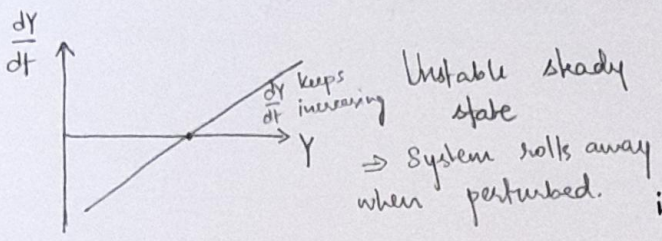 dY
dt
dY keeps
dt increasing
Y
Unstable steady
state
⇒ System rolls away
when perturbed.
i